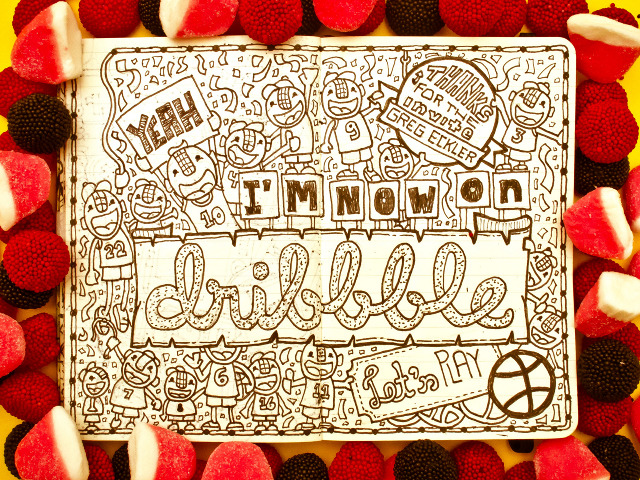 YEAH
THANKS
FOR THE
invite
GREG ECKLER
9
3
10
I'M NOW on
22
dribbble
Let's PLAY
7
8
6
16